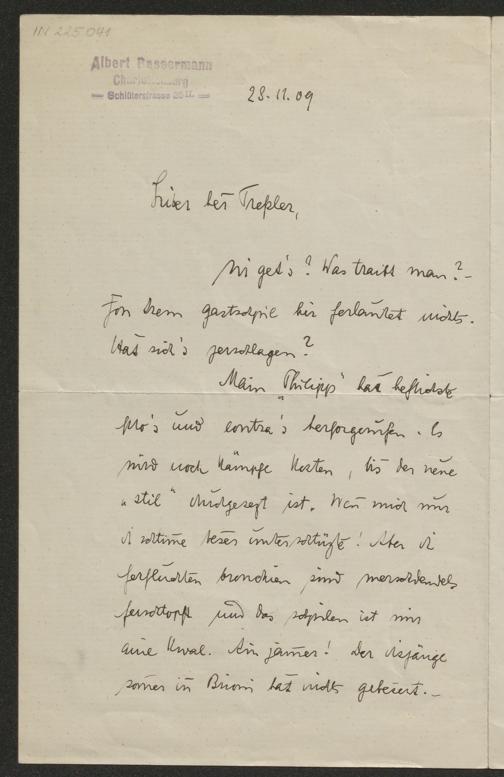 IN 225.041
Albert Bassermann
Charlottenburg
Schlüterstrasse 36 II.
28.11.09
Liber her Treßler,
Wi get's? Was traibt man?–
Fon irem gastschpil hir ferlautet nichts.
Hat sich's zerschlagen?
Main „Philipp" hat heftichste
pro's und contra's herforgerufen. Es
wird noch kämpfe kosten, bis der neue
„stil" durchgesezt ist. Wen mich nur
di schtime beser unterschtüzte! Aber di
ferfluchten bronchien sind merschtendeels
ferschtopft und das schpilen ist mir
aine kwal. Ain jamer! Der disjärige
somer in Brioni hat nichts gebesert.–